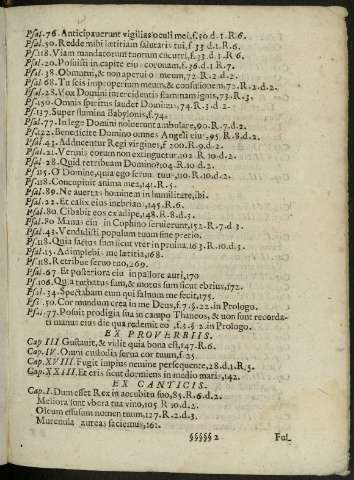 Psal.76. Anticipauerunt vigilias oculi mei, f.30.d.1.R.6.
Psal.50. Redde mihi lætitiam salutaris tui, f.33.d.1.R.6.
Psal.118. Viam mandatorum tuorum cucurri, f.33.d.1.R.6.
Psal.20. Posuisti in capite eius coronam, f.36.d.1.R.7.
Psal.38. Obmutui, & non aperui os meum, 72.R.2.d.2.
Psal.68. Tu scis improperium meum, & confusionem, 72.R.2.d.2.
Psal.28. Vox Domini intercidentis flammam ignis, 73.R.3.
Psal.150. Omnis spiritus laudet Dominum, 74.R.3.d.2.
Psal.137. Super flumina Babylonis, f.74.
Psal.77. In lege Domini noluerunt ambulare, 90.R.7.d.2.
Psal.122. Benedicite Domino omnes Angeli eius, 95.R.8.d.2.
Psal.43. Adducentur Regi virgines, f.200.R.9.d.2.
Psal.21. Vermis eorum non extinguetur, 102.R.10.d.2.
Psal.28. Quid retribuam Domino, 104.R.10.d.2.
Psal.115. O Domine, quia ego seruus tuus, 110.R.10.d.2.
Psal.118. Concupiuit anima mea, 141.R.5.
Psal.89. Ne auertas hominem in humilitate, ibi.
Psal.22. Et calix eius inebrians, 145.R.6.
Psal.80. Cibabit eos ex adipe, 148.R.8.d.3.
Psal.80. Manus eius in Cophino seruierunt, 152.R.7.d.3.
Psal.43. Vendidisti populum tuum sine pretio.
Psal.118. Quia factus sum sicut vter in pruina. 163.R.10.d.3.
Psal.15. Adimplebis me lætitia, 168.
Psal.118. Retribue seruo tuo, 269.
Psal.67. Et posteriora eius in pallore auri, 170
Psal.106. Quia turbatus sum, & motus sum sicut ebrius, 172.
Psal.34. Spectabam eum qui saluum me fecit, 175.
Psal.50. Cor mundum crea in me Deus, f.7.§.22. in Prologo.
Psal.77. Posuit prodigia sua in campo Thaneos, & non sunt recorda-
ti manus eius die qua redemit eos, f.3.§.2. in Prologo.
EX PROVERBIIS.
Cap.III. Gustauit, & vidit quia bona est, 147.R.6.
Cap.IV. Omni custodia serua cor tuum, f.25.
Cap.XVIII. Fugit impius nemine persequente, 28.d.1.R.5.
Cap.XXIII. Et eris sicut dormiens in medio maris, 142.
EX CANTICIS.
Cap.I. Dum esset Rex in accubitu suo, 85.R.6.d.2.
Meliora sunt vbera tua vino, 105.R.10.d.2.
Oleum effusum nomen tuum, 127.R.2.d.3.
Murenulas aureas faciemus, 161.
§§§§§ 2
Ful-